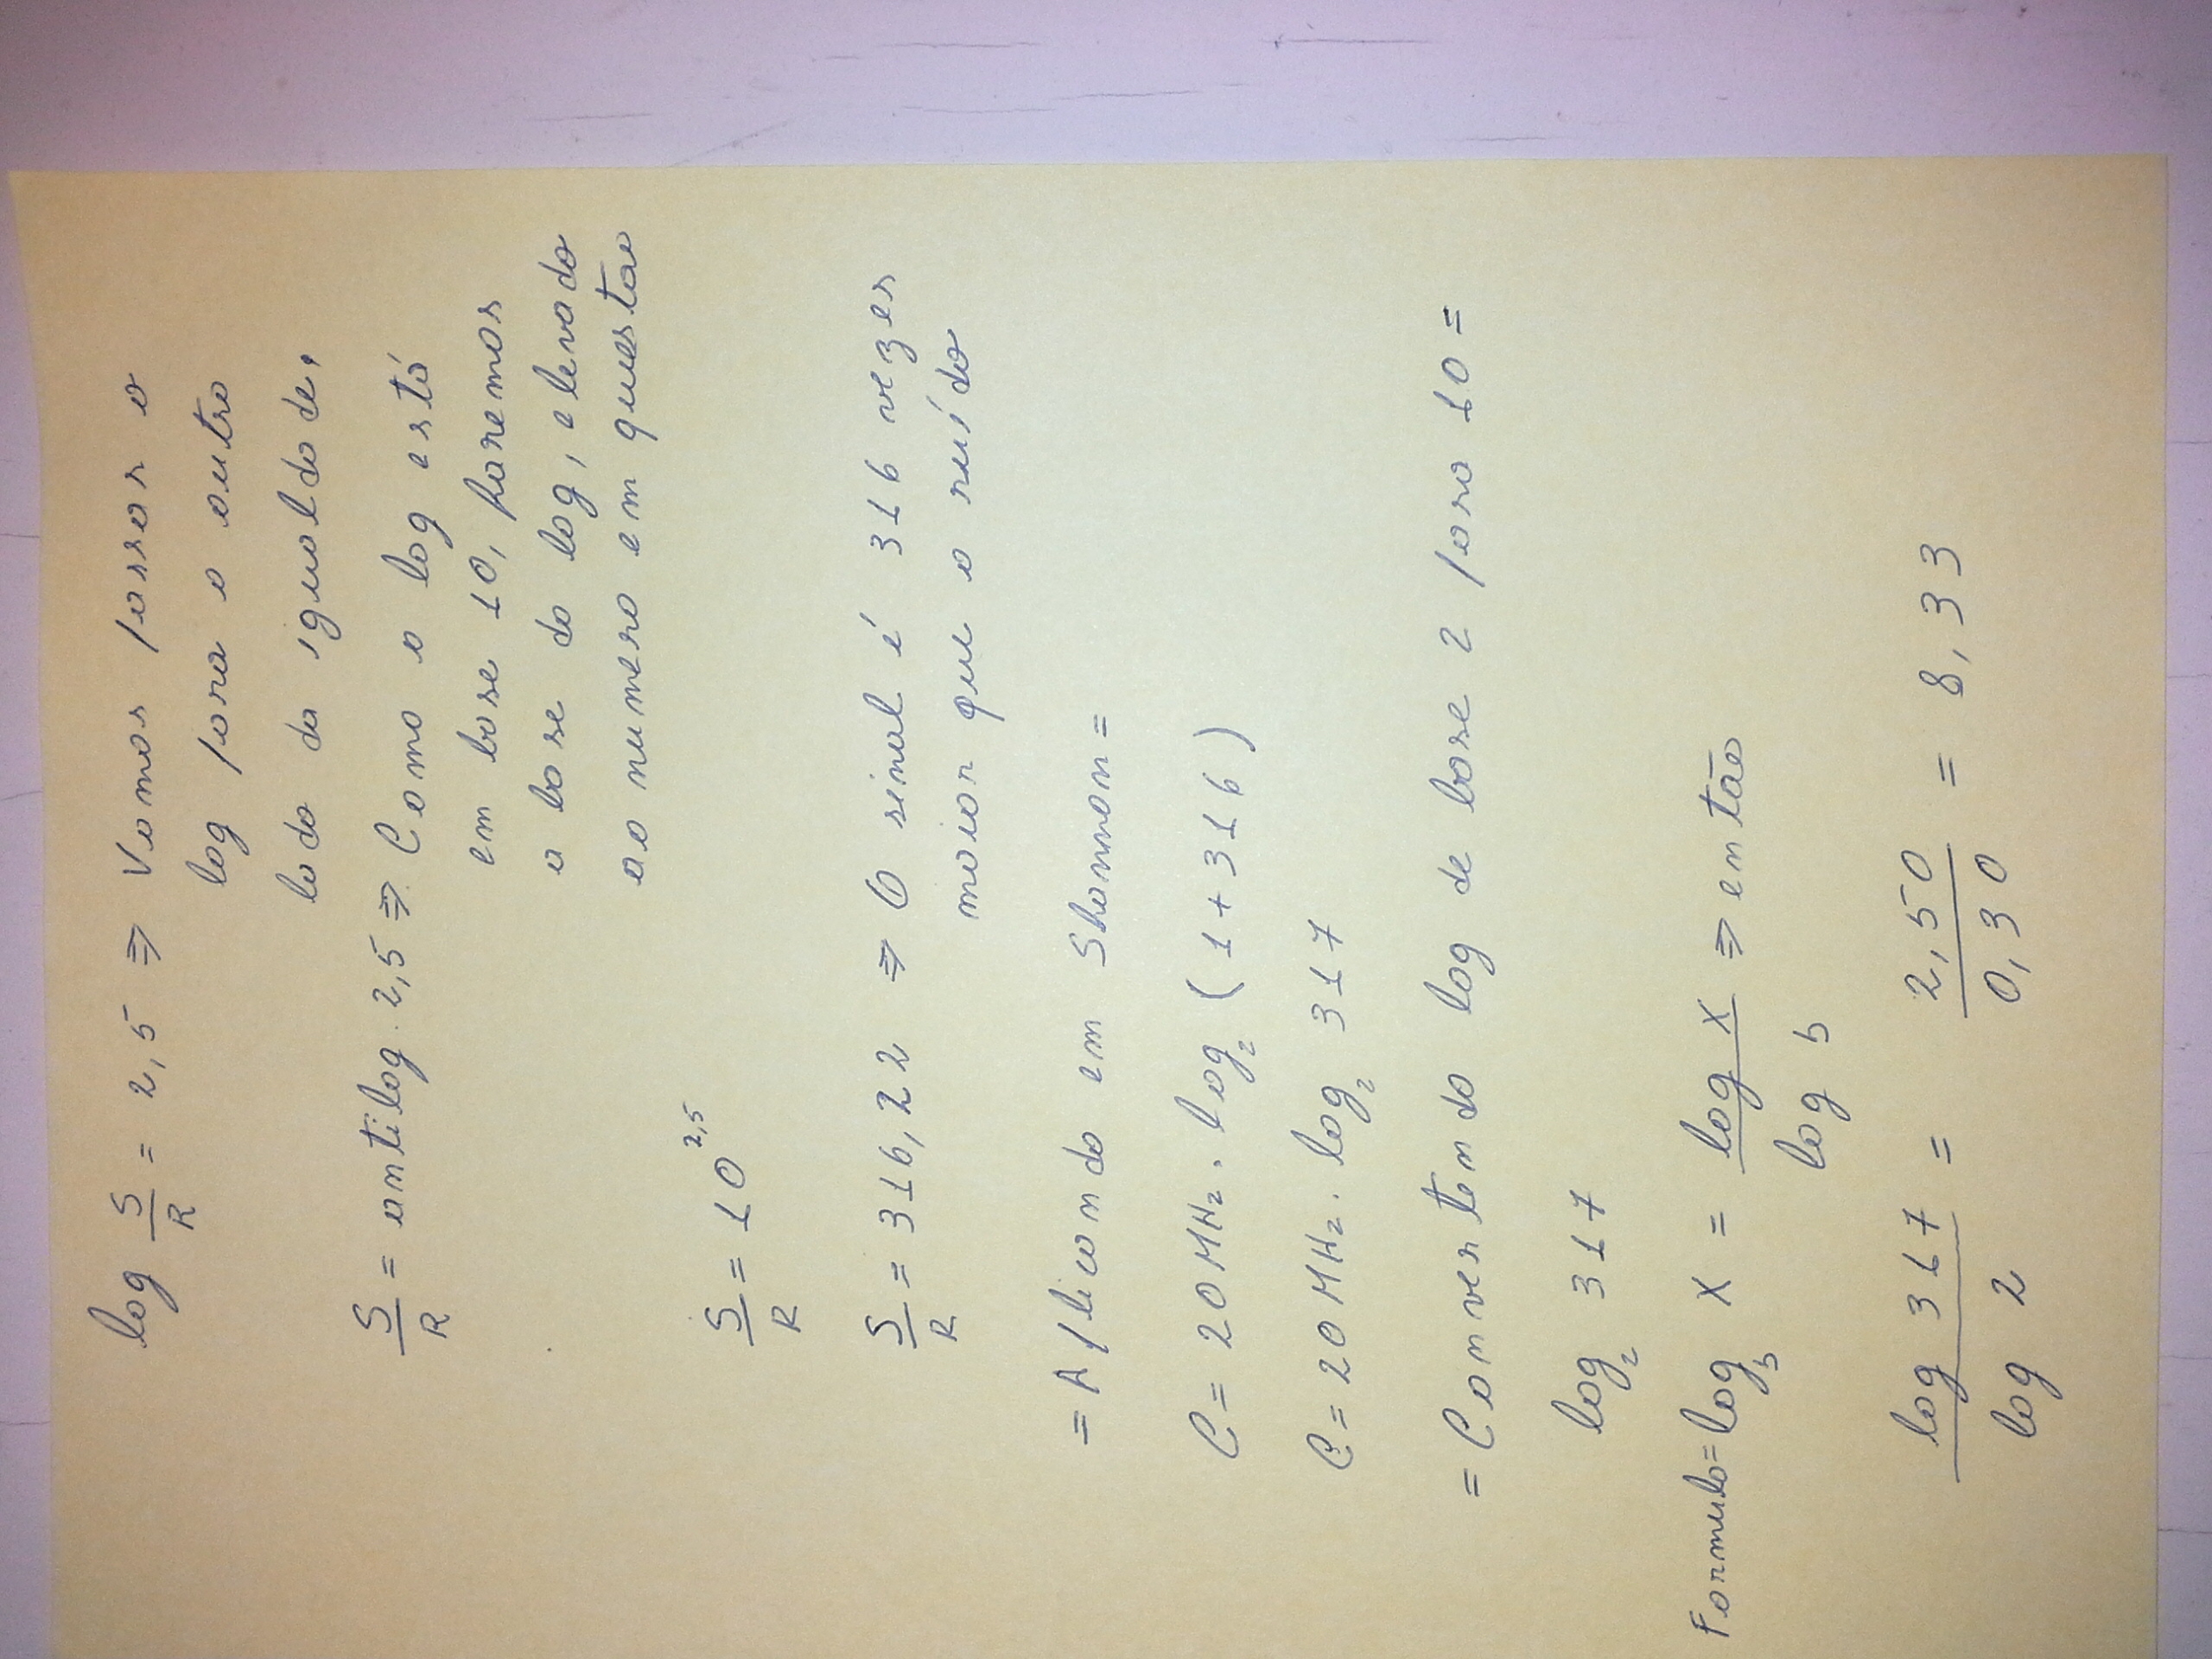 log S/R = 2,5 ⇒ Vamos passar o
log para o outro
lado da igualdade.
S/R = antilog 2,5 ⇒ Como o log está
em base 10, faremos
a base do log, elevado
ao numero em questão
S/R = 10^2,5
S/R = 316,22 ⇒ O sinal é 316 vezes
maior que o ruído
= Aplicando em Shannon =
C = 20 MHz . log₂ (1 + 316)
C = 20 MHz . log₂ 317
= Convertendo log de base 2 para 10 =
log₂ 317
Formula = log_b X = log X / log b ⇒ então
log 317 / log 2 = 2,50 / 0,30 = 8,33